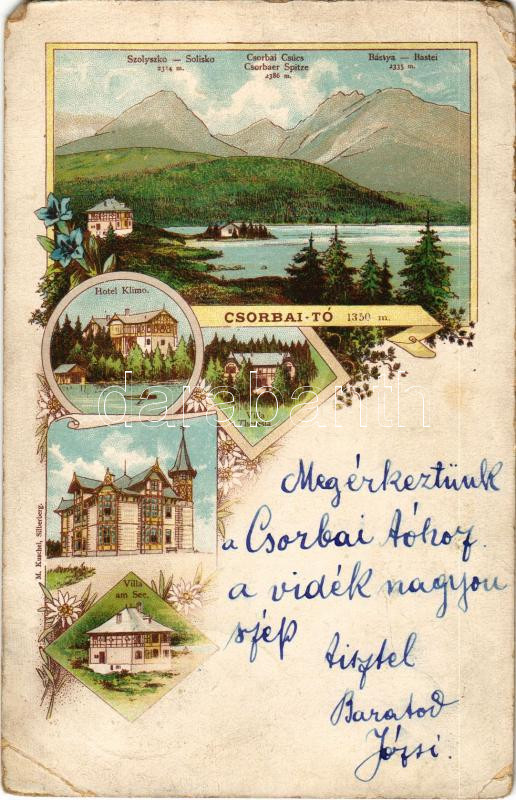 Szolyszko — Solisko
2314 m.
Csorbai Csúcs
Csorbaer Spitze
2386 m.
Bástya — Bastei
2335 m.
CSORBAI-TÓ 1350 m.
Hotel Klimo.
Villa
M. Kuschel, Silberberg.
Villa
am See.
darabanth
Megérkeztünk
a Csorbai tóhoz.
a vidék nagyon
szép
tisztel
Baratod
Józsi.